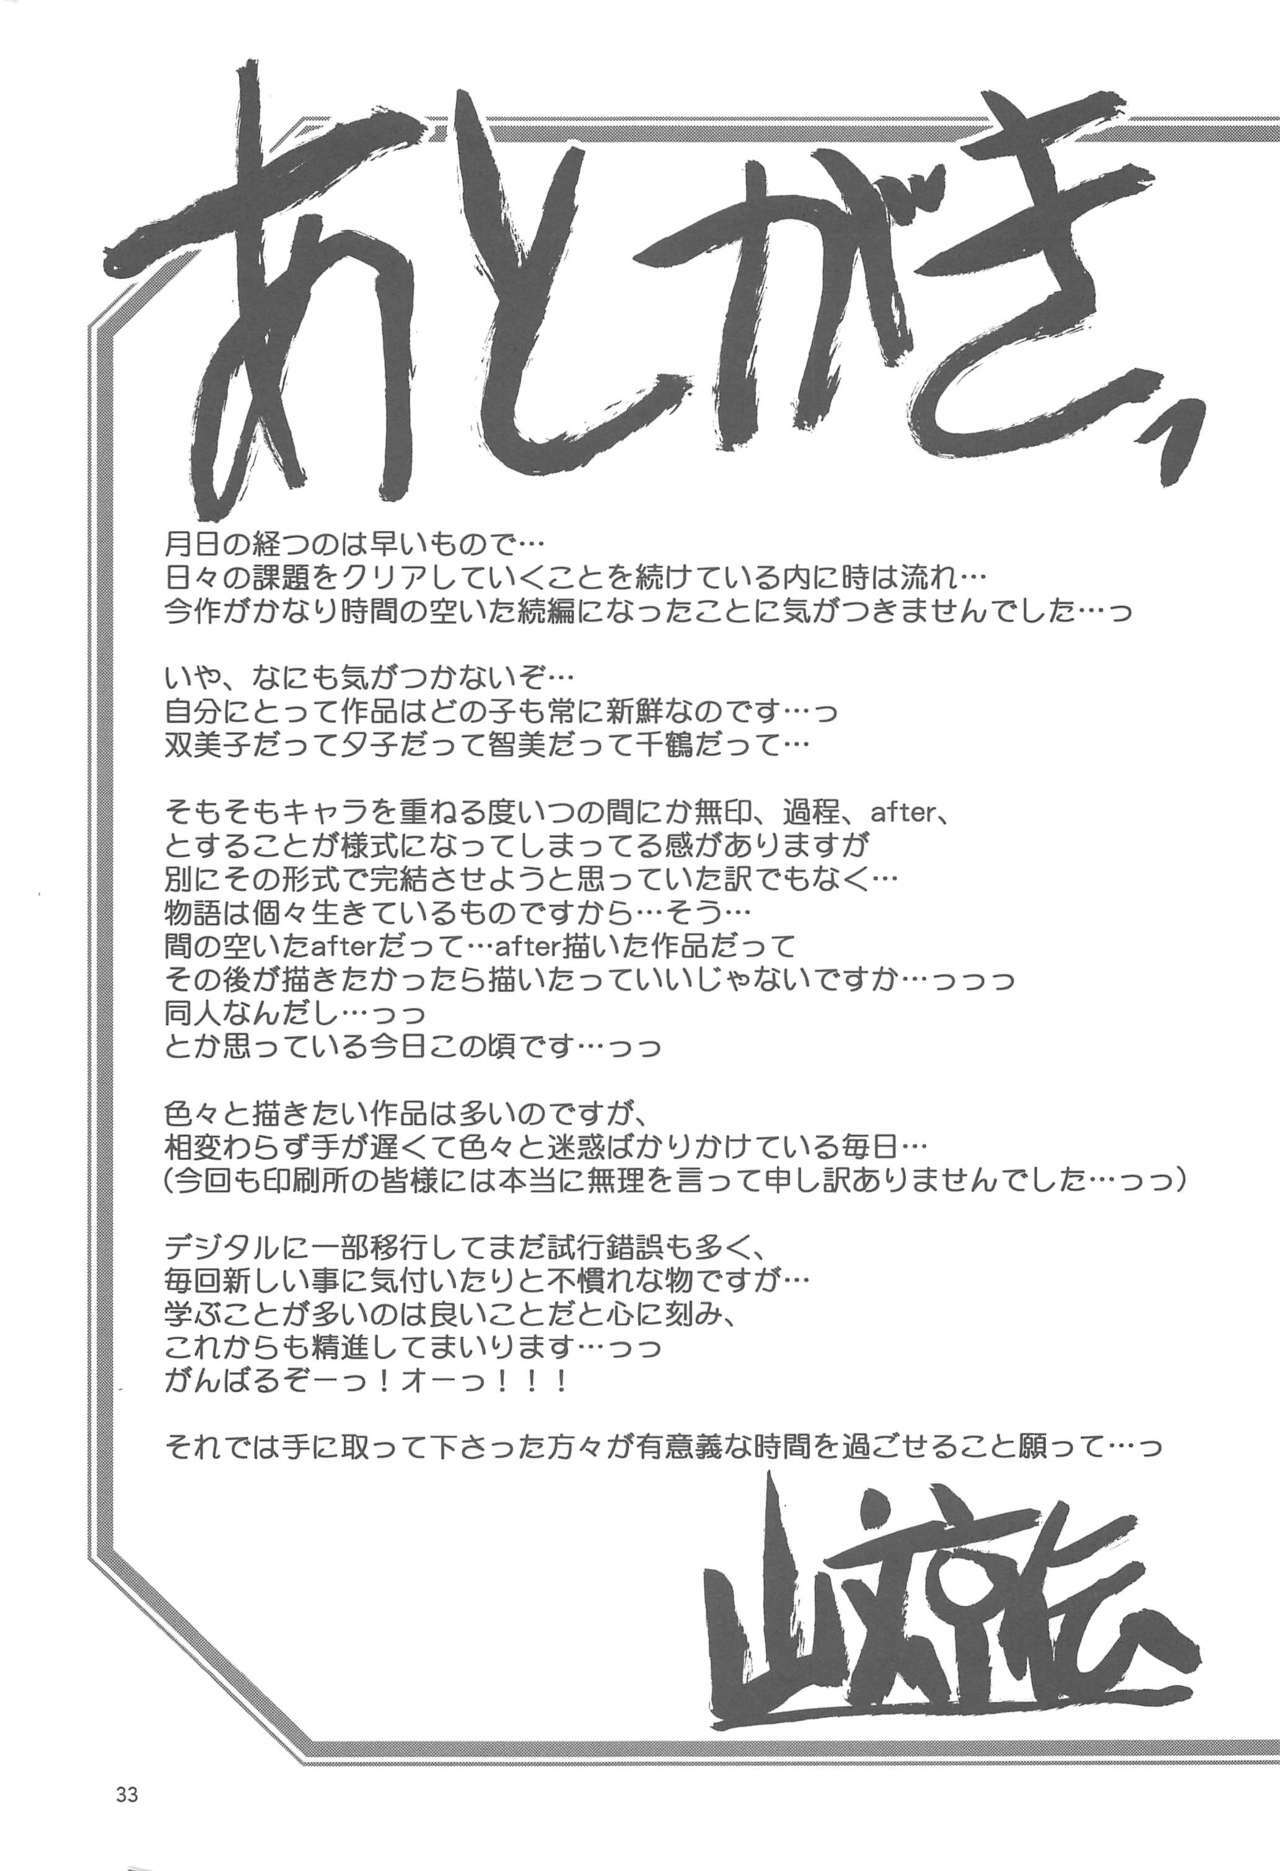 あとがき、
月日の経つのは早いもので…
日々の課題をクリアしていくことを続けている内に時は流れ…
今作がかなり時間の空いた続編になったことに気がつきませんでした…っ
いや、なにも気がつかないぞ…
自分にとって作品はどの子も常に新鮮なのです…っ
双美子だって夕子だって智美だって千鶴だって…
そもそもキャラを重ねる度いつの間にか無印、過程、after、
とすることが様式になってしまってる感がありますが
別にその形式で完結させようと思っていた訳でもなく…
物語は個々生きているものですから…そう…
間の空いたafterだって…after描いた作品だって
その後が描きたかったら描いたっていいじゃないですか…っっっ
同人なんだし…っっ
とか思っている今日この頃です…っっ
色々と描きたい作品は多いのですが、
相変わらず手が遅くて色々と迷惑ばかりかけている毎日…
（今回も印刷所の皆様には本当に無理を言って申し訳ありませんでした…っっ）
デジタルに一部移行してまだ試行錯誤も多く、
毎回新しい事に気付いたりと不慣れな物ですが…
学ぶことが多いのは良いことだと心に刻み、
これからも精進してまいります…っっ
がんばるぞーっ！オーっ！！！
それでは手に取って下さった方々が有意義な時間を過ごせること願って…っ
山文京伝
33